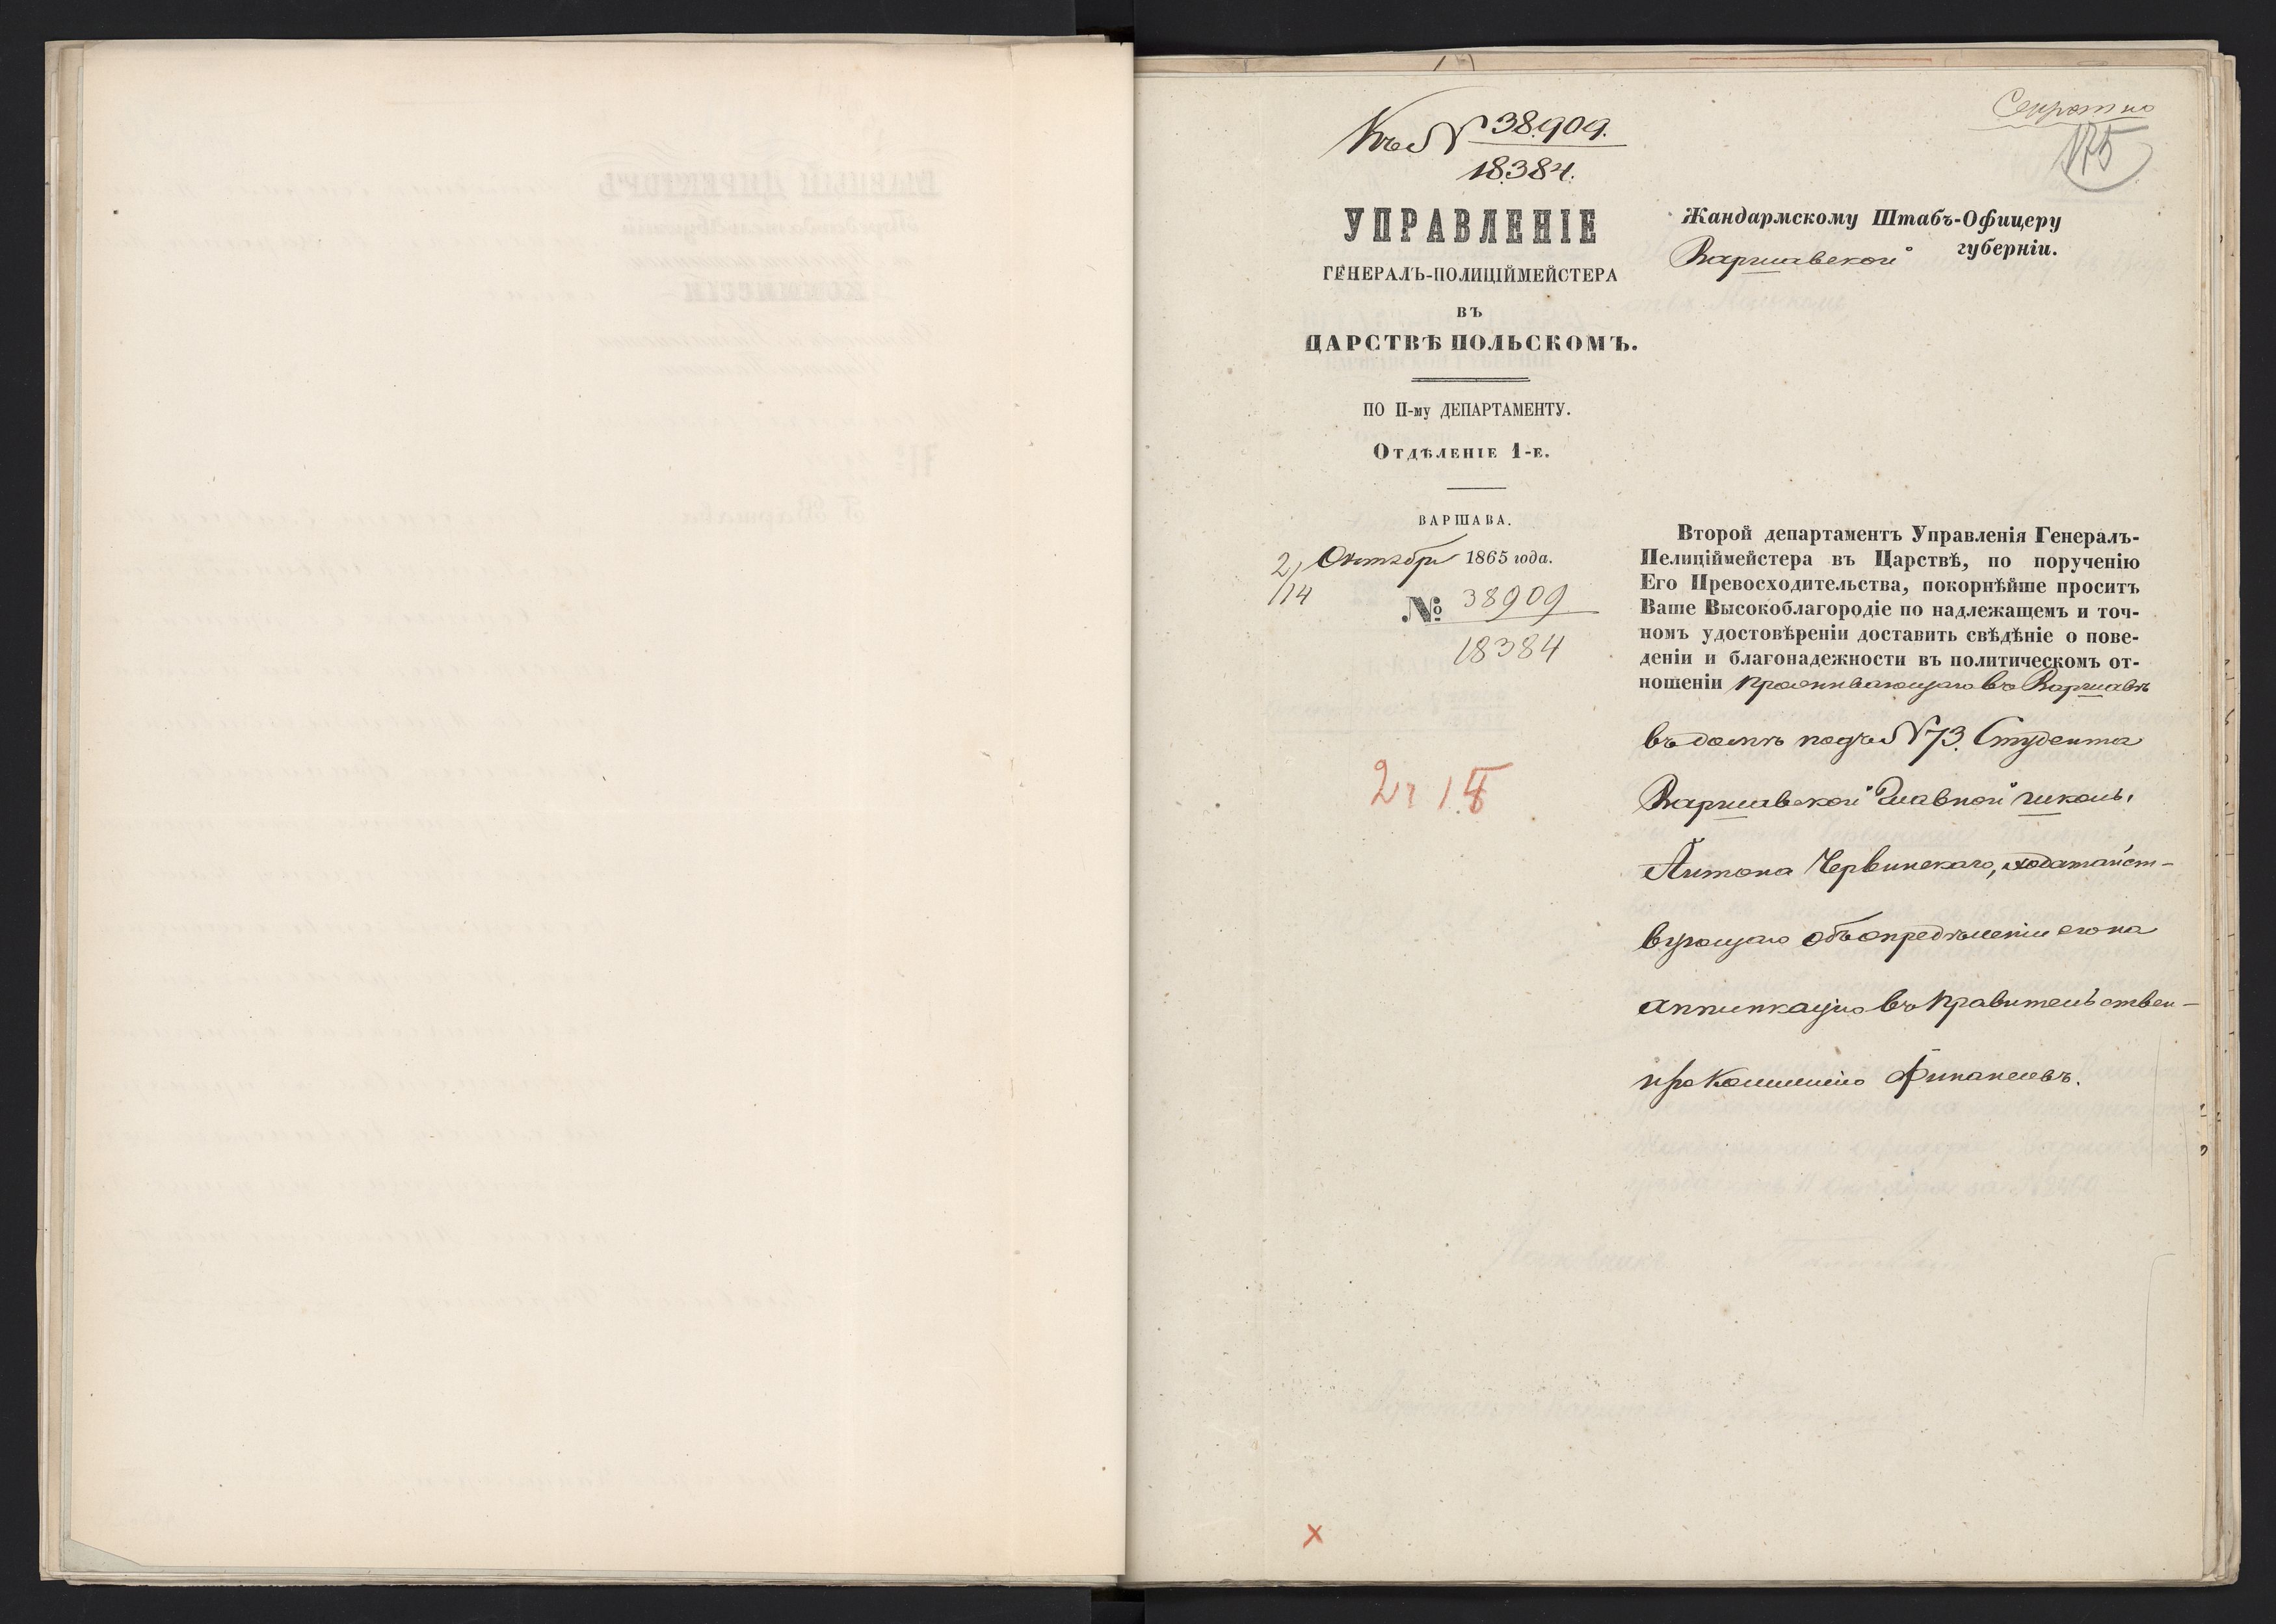 Секретно
175
Къ № 38.909.
18.384.
УПРАВЛЕНІЕ
ГЕНЕРАЛЪ-ПОЛИЦІЙМЕЙСТЕРА
ВЪ
ЦАРСТВѢ ПОЛЬСКОМЪ.
ПО II-му ДЕПАРТАМЕНТУ.
Отдѣленіе 1-е.
ВАРШАВА.
2/14 Октября 1865 года.
№ 38909
18384
2 15
Жандармскому Штабъ-Офицеру
Варшавской губерніи.
Второй департаментъ Управленія Генералъ-
Пелиціймейстера въ Царствѣ, по порученію
Его Превосходительства, покорнѣйше проситъ
Ваше Высокоблагородіе по надлежащемъ и точ-
номъ удостовѣреніи доставить свѣдѣніе о пове-
деніи и благонадежности въ политическомъ от-
ношеніи проживающаго въ Варшавѣ
въ домѣ подъ № 73. Студента
Варшавской Главной школы,
Антона Червинскаго, ходатайст-
вующаго объ опредѣленіи его на
аппликацію въ Правительствен-
ную Коммисію Финансовъ.
х